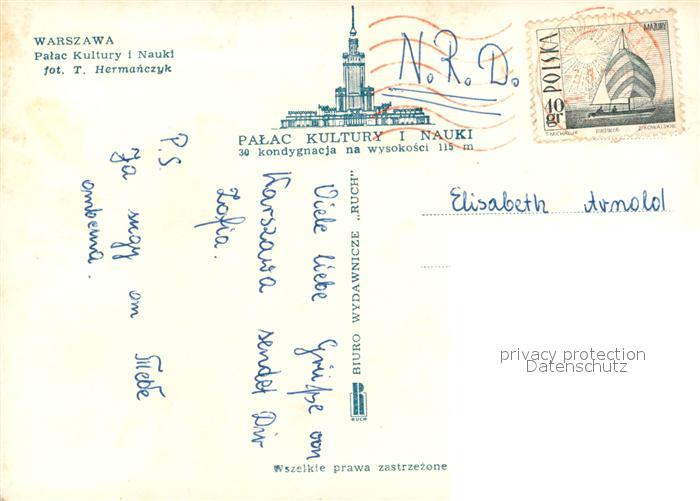 WARSZAWA
Pałac Kultury i Nauki
fot. T. Hermańczyk
N.R.D.
POLSKA
MAZURY
40 gr
T. MICHALUK
Z. KOWALSKI
PAŁAC KULTURY I NAUKI
30 kondygnacja na wysokości 115 m
Elisabeth Arnold
privacy protection
Datenschutz
Viele liebe Grüße von
Warszawa sendet Dir
Zofia.
P.S.
BIURO WYDAWNICZE „RUCH"
RUCH
Wszelkie prawa zastrzeżone